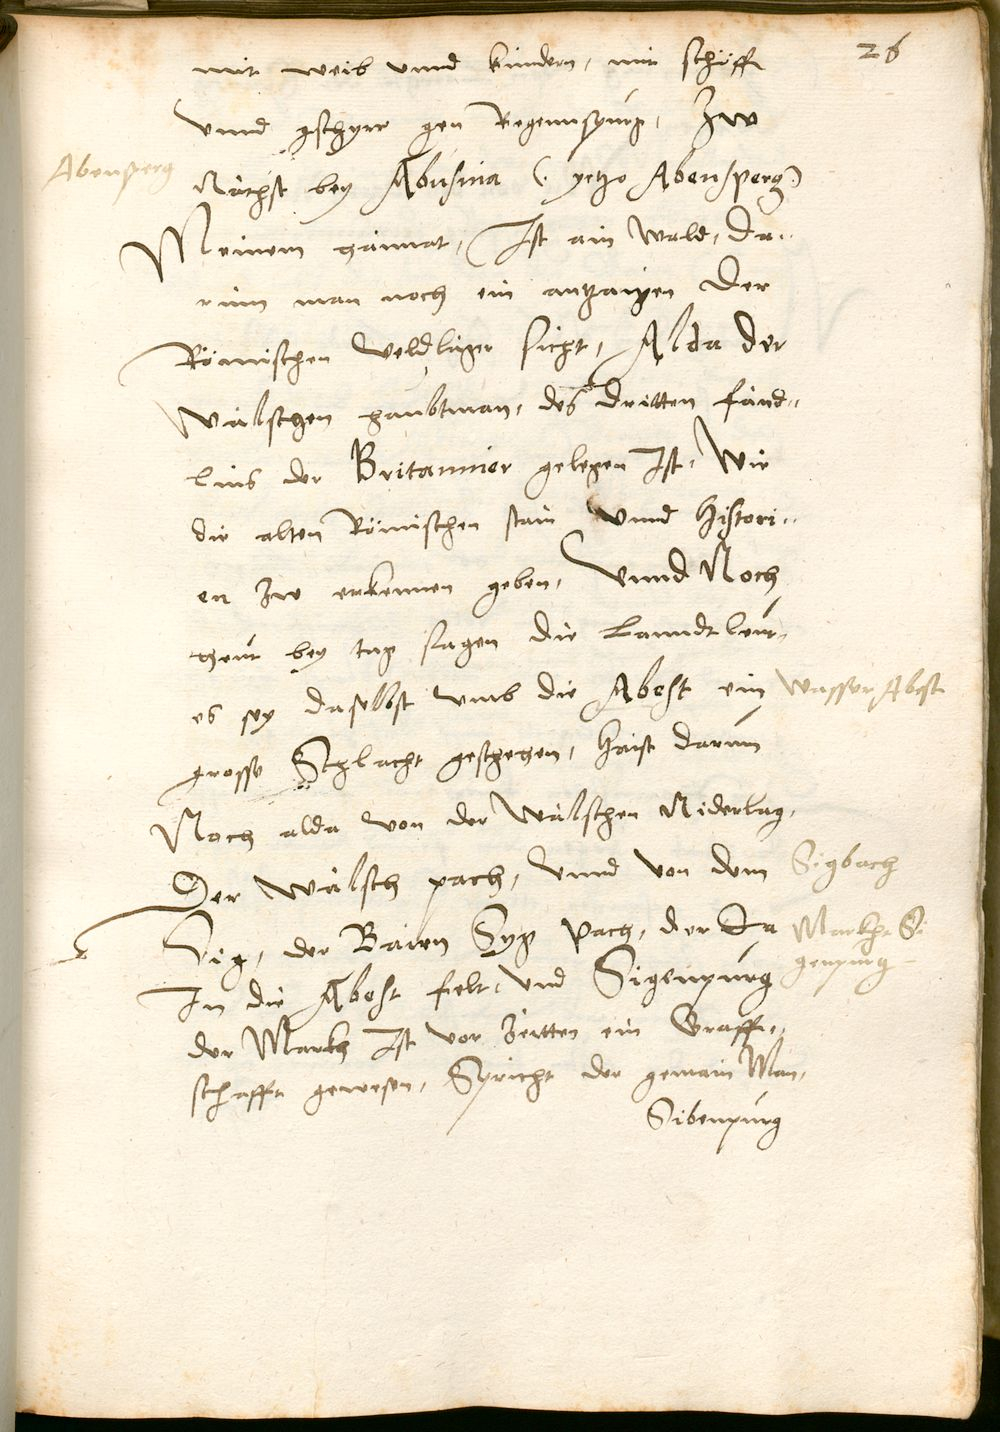 26
mit weib vnnd kündern, mit schiff
vnnd gschyrr gen Regennspurg, Zw
Abensperg
Nächst bey Abusina (yetzo Abensperg)
Meinem haimat, Ist ain Wald, da-
rinn man noch ein antzaigen der
Römischen Veldläger sicht, Alda der
Wälschen haubtman, des dritten fänd-
lins der Britannier gelegen Ist, Wie
die alten Römischen stain vnnd Histori-
en Zw erkennen geben, Vnnd Noch
heut bey tag sagen die Lanndtleut,
es sey daselbst vmb die Abest ein
Wasser Abest
grosse Schlacht geschehen, haist darum
Noch alda von der Wälschen Niderlag,
Der Wälsch pach, vnnd von dem
Sigbach
Sig, der Bairn Syg Pach, der da
Markht Si
genpurg
In die Abest felt, vnd Sigenpurg
der Markh Ist vor Zeitten ein Graff-
schafft gewesen, Spricht der gemain Man,
Sibenpurg